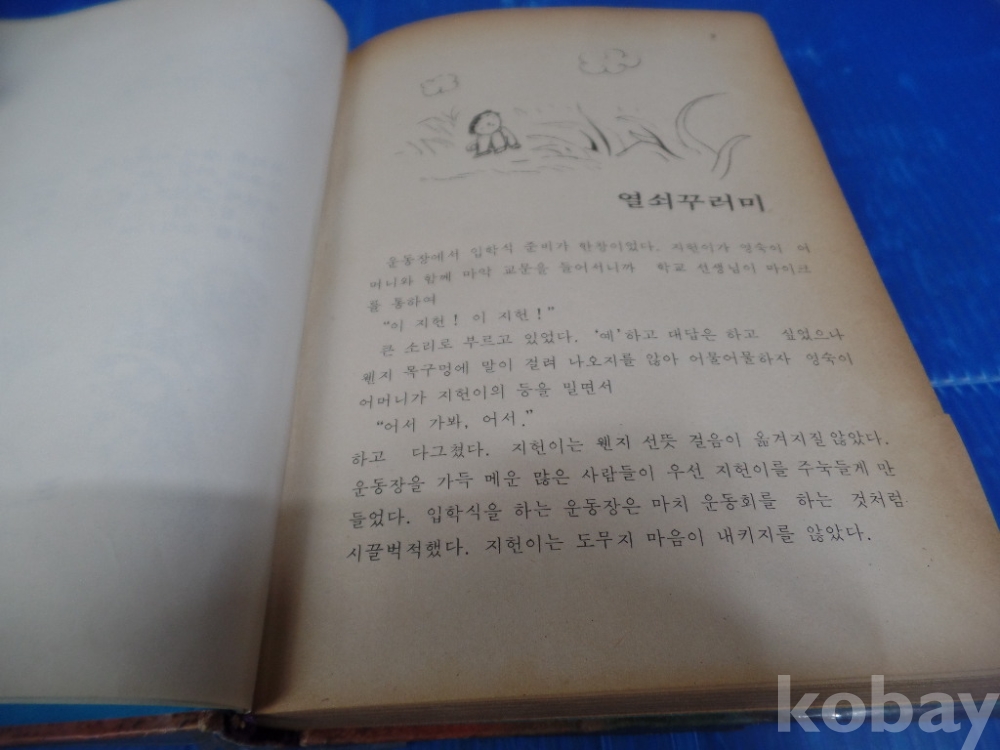 열쇠꾸러미
운동장에서 입학식 준비가 한창이었다. 지헌이가 영숙이 어
머니와 함께 마악 교문을 들어서니까 학교 선생님이 마이크
를 통하여
“이 지헌! 이 지헌!”
큰 소리로 부르고 있었다. ‘예’하고 대답은 하고 싶었으나
웬지 목구멍에 말이 걸려 나오지를 않아 어물어물하자 영숙이
어머니가 지헌이의 등을 밀면서
“어서 가봐, 어서.”
하고 다그쳤다. 지헌이는 웬지 선뜻 걸음이 옮겨지질않았다.
운동장을 가득 메운 많은 사람들이 우선 지헌이를 주눅들게 만
들었다. 입학식을 하는 운동장은 마치 운동회를 하는 것처럼
시끌벅적했다. 지헌이는 도무지 마음이 내키지를 않았다.
kobay